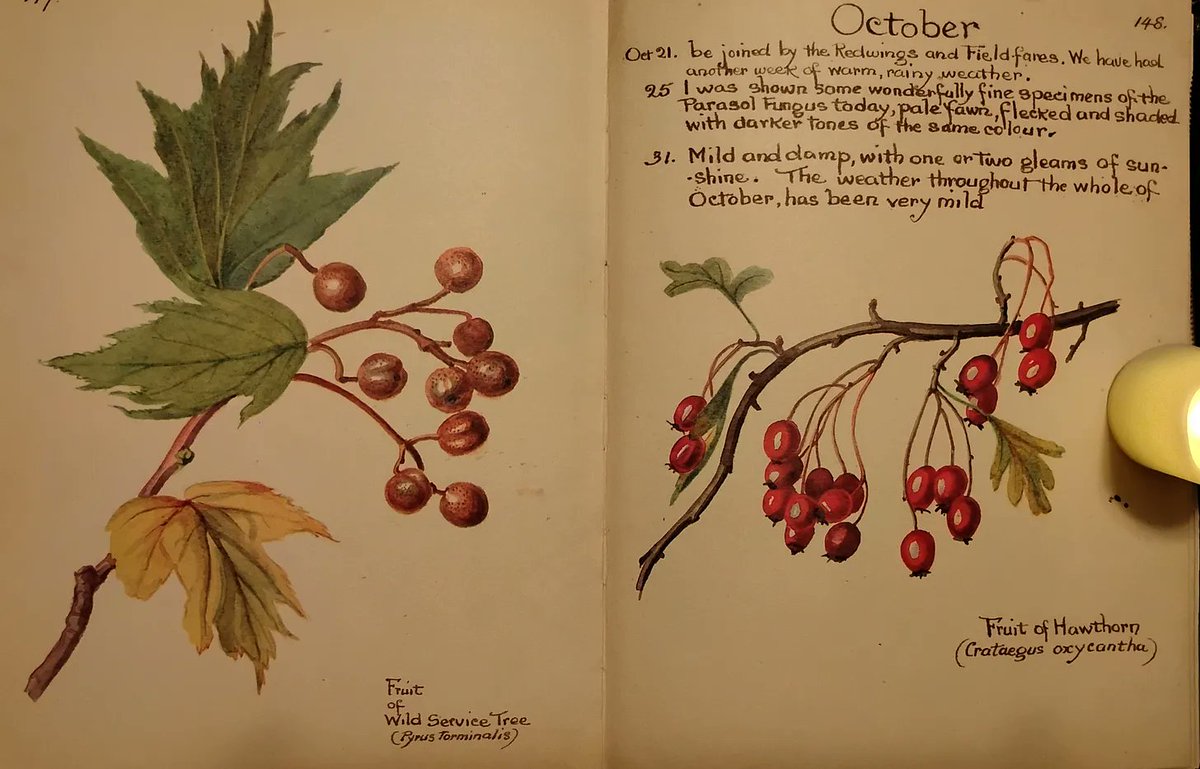 Fruit
of
Wild Service Tree
(Pyrus Torminalis)
October
148.
Oct 21. be joined by the Redwings and Fieldfares. We have had
another week of warm, rainy weather.
25 I was shown some wonderfully fine specimens of the
Parasol Fungus today, pale fawn, flecked and shaded
with darker tones of the same colour.
31. Mild and damp, with one or two gleams of sun-
-shine. The weather throughout the whole of
October, has been very mild
Fruit of Hawthorn
(Crataegus oxycantha)